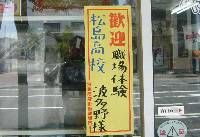 歓迎
職場体験
松島高校
波多野様